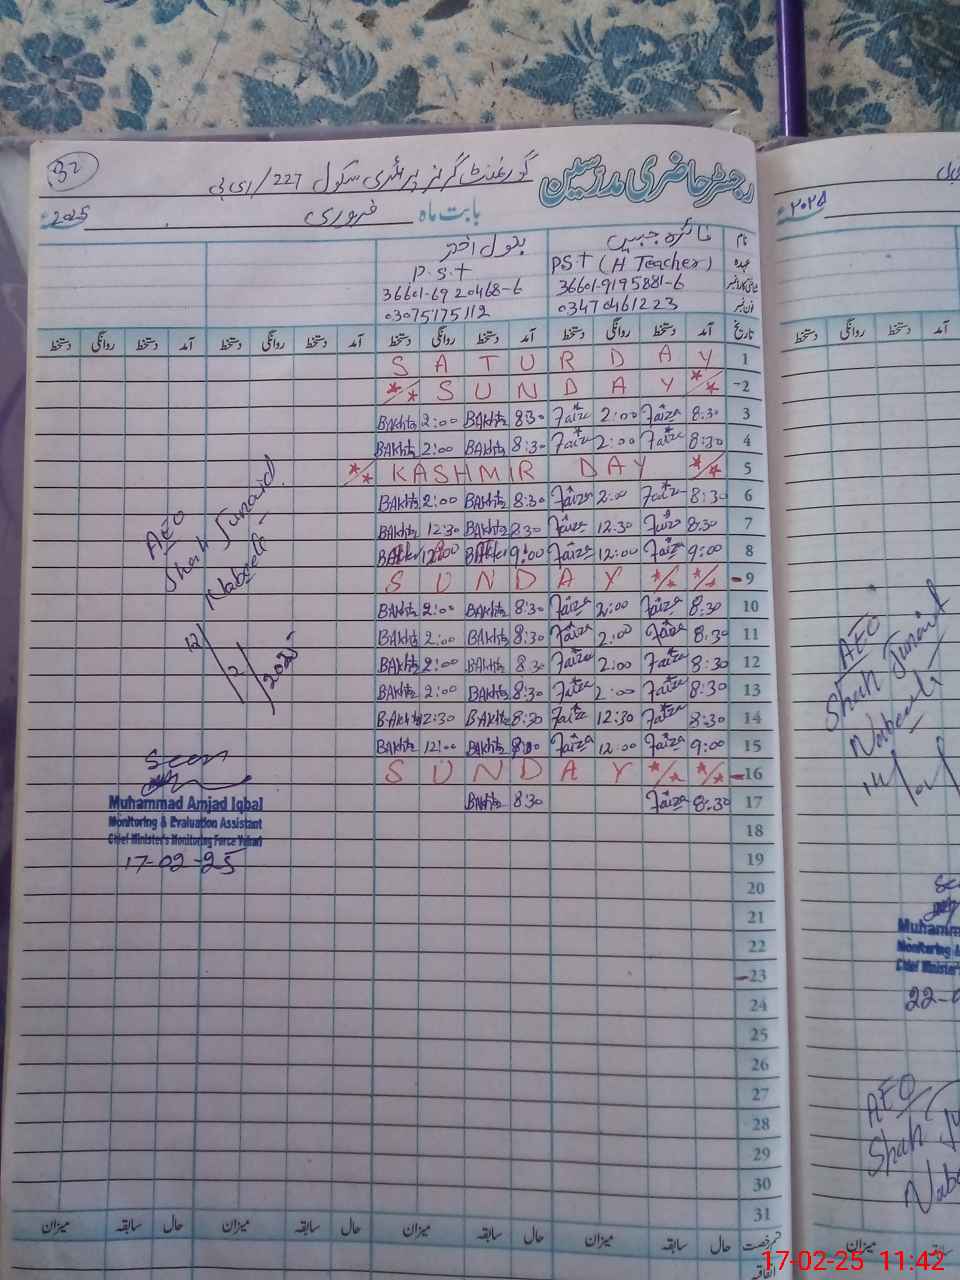 32
رجسٹر حاضری مدرسین گورنمنٹ گرلز پرائمری سکول 227/ای بی
بابت ماہ فروری 2025ء
نام فائزہ جبیں
عہدہ PST (H Teacher) P.S.T
36601-9195881-6 36601-6920468-6
03470461223 03075175112
تاریخ آمد دستخط روانگی دستخط آمد دستخط روانگی دستخط آمد دستخط روانگی دستخط آمد دستخط روانگی دستخط
SATURDAY 1
** SUNDAY ** 2
Bakhta 2:00 Bakhta 8:30 Faiza 2:00 Faiza 8:30 3
Bakhta 2:00 Bakhta 8:30 Faiza 2:00 Faiza 8:30 4
** KASHMIR DAY ** 5
Bakhta 2:00 Bakhta 8:30 Faiza 2:00 Faiza 8:30 6
Bakhta 12:30 Bakhta 8:30 Faiza 12:30 Faiza 8:30 7
12:00 9:00 Faiza 12:00 Faiza 9:00 8
SUNDAY ** ** 9
Bakhta 2:00 Bakhta 8:30 Faiza 2:00 Faiza 8:30 10
Bakhta 2:00 Bakhta 8:30 Faiza 2:00 Faiza 8:30 11
Bakhta 2:00 Bakhta 8:30 Faiza 2:00 Faiza 8:30 12
Bakhta 2:00 Bakhta 8:30 Faiza 2:00 Faiza 8:30 13
Bakhta 12:30 Bakhta 8:30 Faiza 12:30 Faiza 8:30 14
Bakhta 12:00 Bakhta Faiza 12:00 Faiza 9:00 15
SUNDAY ** ** 16
Bakhta 8:30 Faiza 8:30 17
18
19
20
21
22
23
24
25
26
27
28
29
30
31
حال سابقہ میزان حال سابقہ میزان حال سابقہ میزان حال سابقہ میزان
AEO
Shah Junaid
Nabeel
12/2/2025
Seen
Muhammad Amjad Iqbal
Monitoring & Evaluation Assistant
Chief Minister's Monitoring Force Vehari
17-02-25
۲۰۲۵ء
آمد دستخط روانگی دستخط
AEO
Shah Junaid
Nabeel
Muhamm
Monitoring &
Chief Minister
22-0
AEO
Shah Ju
Nabe
میزان
17-02-25 11:42